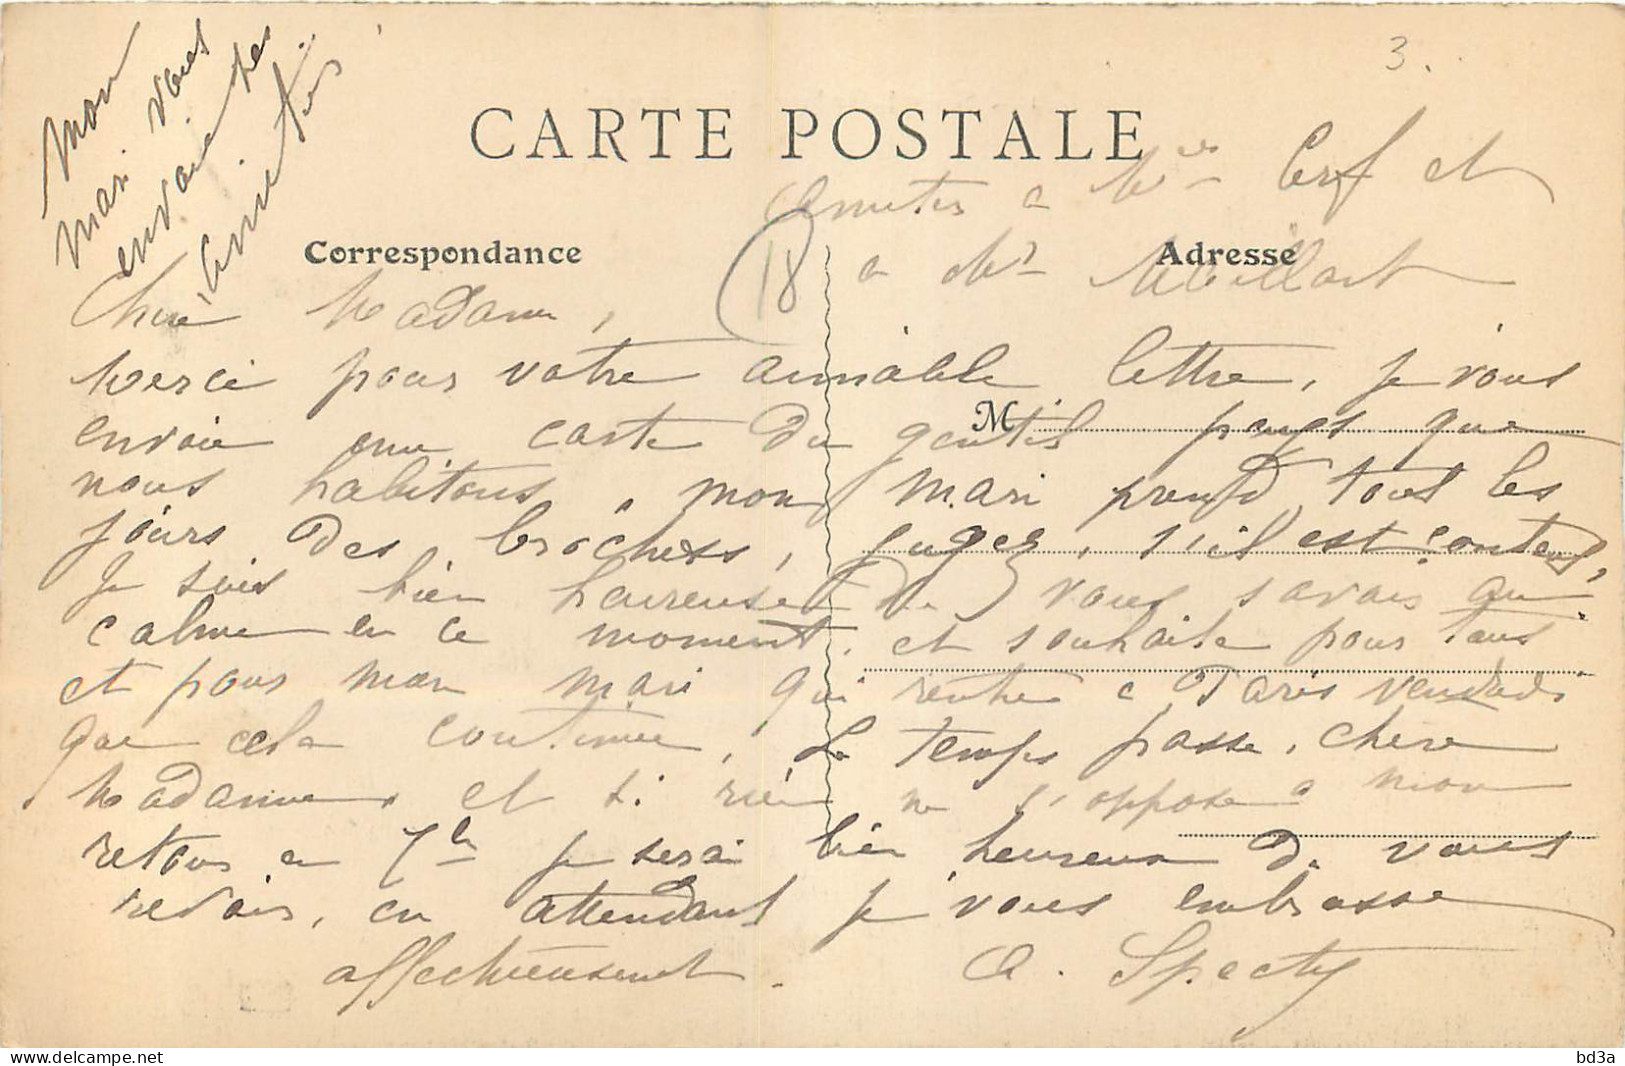 3.
Mon
mari vous
envoie ses
amitiés
CARTE POSTALE
Amitiés a Mmes Cerf et
Correspondance
18
a Mr Maillart
Adresse
Chère Madame,
Merci pour votre aimable lettre, je vous
envoie une carte du gentil pays que
M
nous habitons, mon mari prend tous les
jours des brochets, jugez, s'il est content,
je suis bien heureuse de vous savoir au
calme en ce moment. et souhaite pour tous
et pour mon mari qui rentre a Paris vendredi
que cela continue, Le temps passe, chère
Madame, et si rien ne s'oppose a mon
retour en 7bre je serai bien heureuse de vous
revoir, en attendant je vous embrasse
affectueusement.
A. Specty
delcampe.net
bd3a